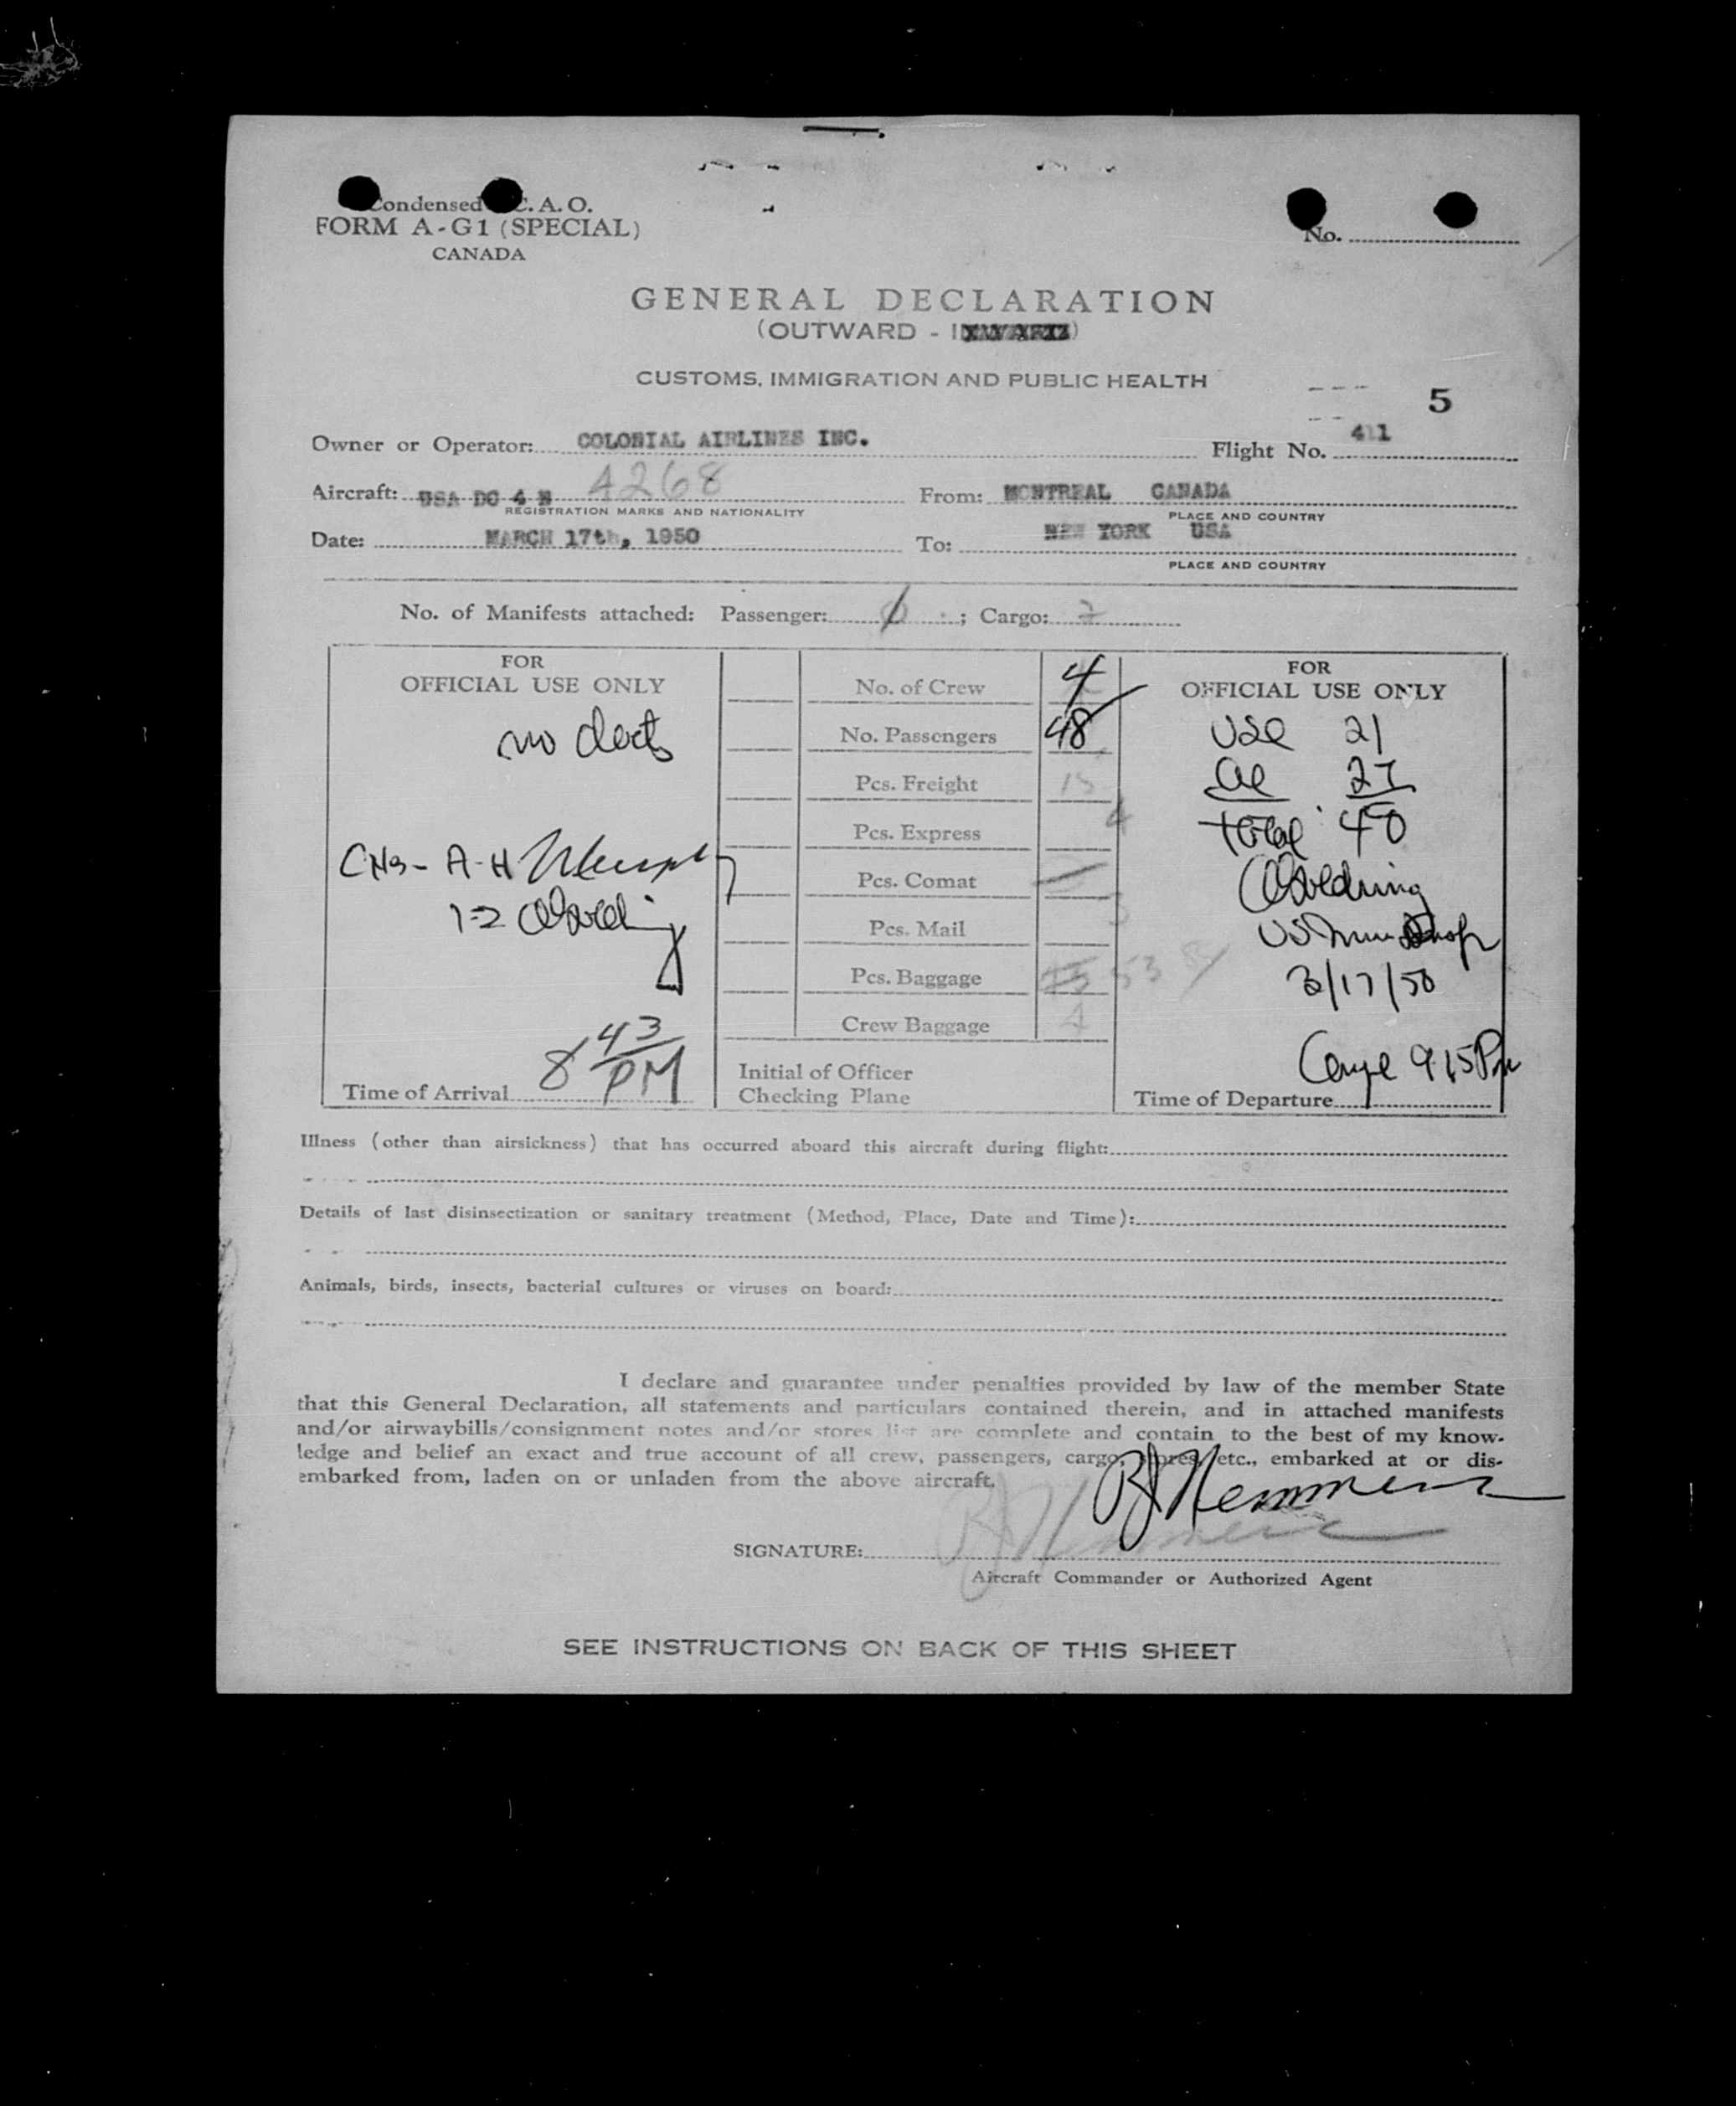 Condensed C. A. O.
FORM A-G1 (SPECIAL)
CANADA
No.
GENERAL DECLARATION
(OUTWARD - I
CUSTOMS, IMMIGRATION AND PUBLIC HEALTH
5
Owner or Operator: COLONIAL AIRLINES INC. Flight No. 411
Aircraft: USA DC 4 N 4268 From: MONTREAL CANADA
REGISTRATION MARKS AND NATIONALITY PLACE AND COUNTRY
Date: MARCH 17th, 1950 To: NEW YORK USA
PLACE AND COUNTRY
No. of Manifests attached: Passenger: ; Cargo: 2
FOR
OFFICIAL USE ONLY
no
8 43 PM
Time of Arrival
No. of Crew 4
No. Passengers 48
Pcs. Freight 15
Pcs. Express 4
Pcs. Comat
Pcs. Mail 3
Pcs. Baggage 53
Crew Baggage 4
Initial of Officer
Checking Plane
FOR
OFFICIAL USE ONLY
USC 21
27
Total 48
3/17/50
9 15 PM
Time of Departure
Illness (other than airsickness) that has occurred aboard this aircraft during flight:
Details of last disinsectization or sanitary treatment (Method, Place, Date and Time):
Animals, birds, insects, bacterial cultures or viruses on board:
I declare and guarantee under penalties provided by law of the member State
that this General Declaration, all statements and particulars contained therein, and in attached manifests
and/or airwaybills/consignment notes and/or stores list are complete and contain to the best of my know-
ledge and belief an exact and true account of all crew, passengers, cargo, stores, etc., embarked at or dis-
embarked from, laden on or unladen from the above aircraft.
SIGNATURE:
Aircraft Commander or Authorized Agent
SEE INSTRUCTIONS ON BACK OF THIS SHEET